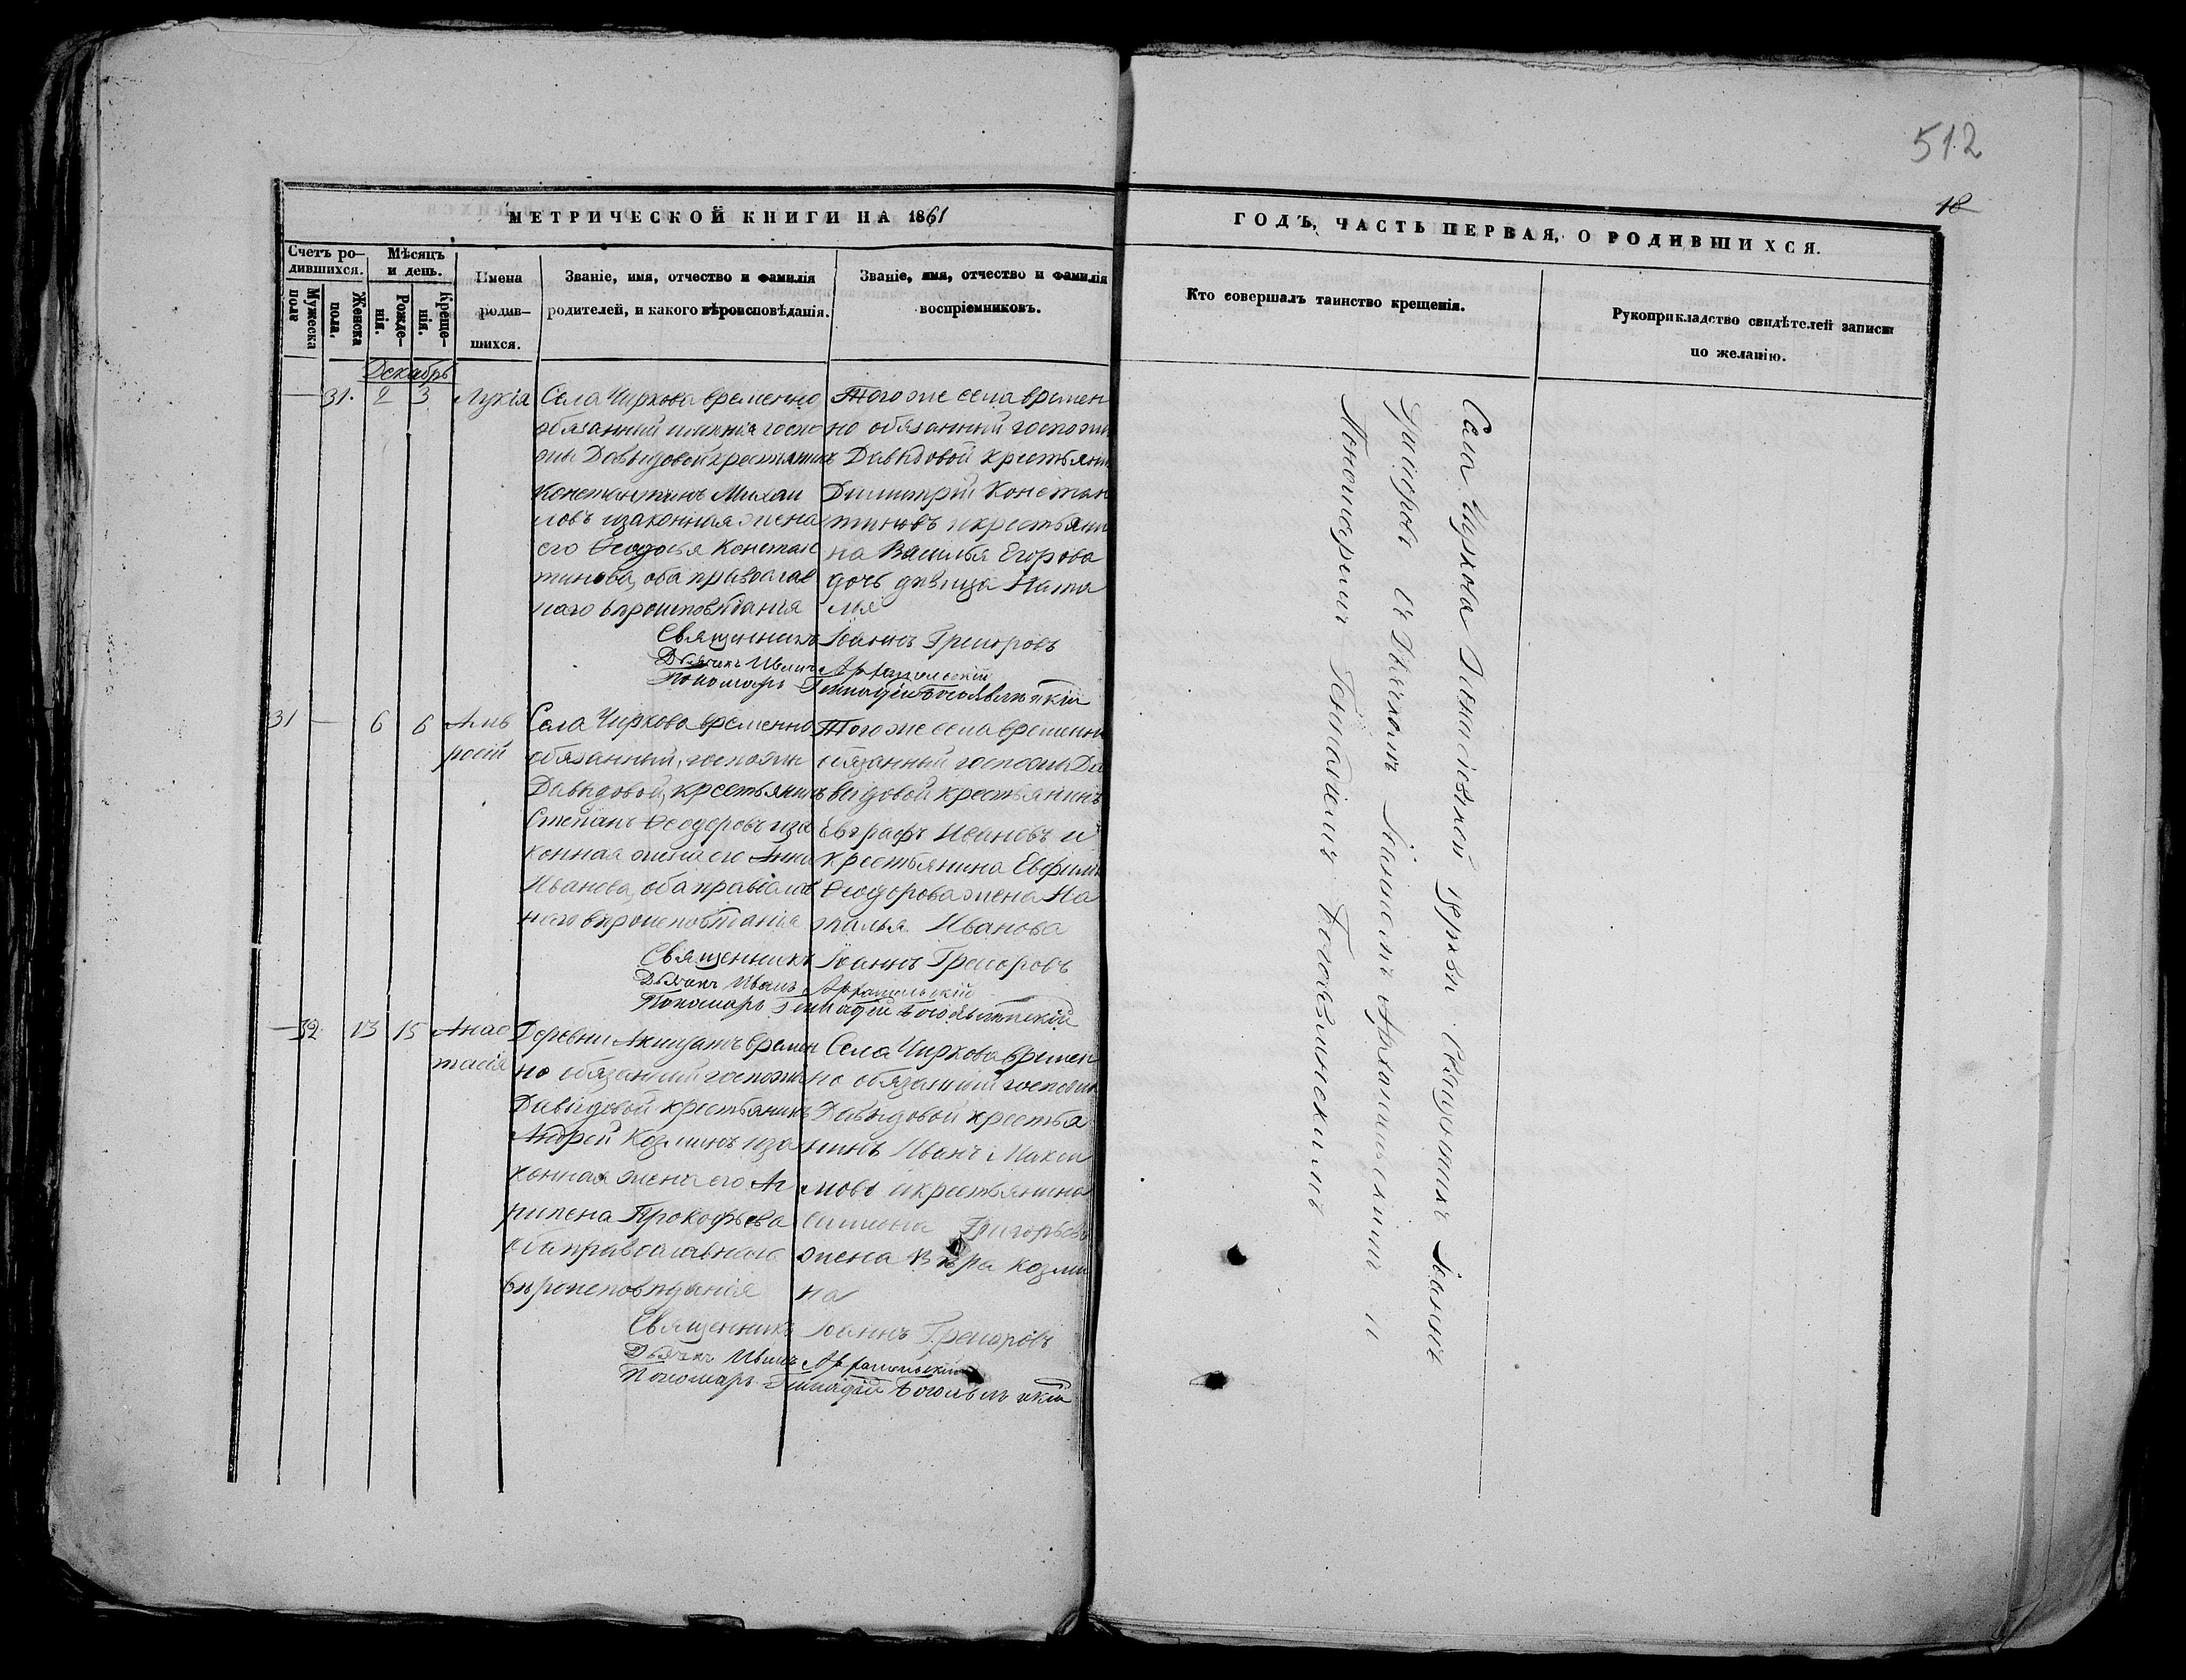 512
18
МЕТРИЧЕСКОЙ КНИГИ НА 1861
ГОДЪ, ЧАСТЬ ПЕРВАЯ, О РОДИВШИХСЯ.
Счетъ ро-
дившихся.
Мужеска
пола
Женска
пола.
Мѣсяцъ
и день.
Рожде-
нія.
Креще-
нія.
Имена
родив-
шихся.
Званіе, имя, отчество и фамилія
родителей, и какого вѣроисповѣданія.
Званіе, имя, отчество и фамилія
воспріемниковъ.
Кто совершалъ таинство крещенія.
Рукоприкладство свидѣтелей записи
по желанію.
Декабрь
— 31. 2 3 Лукія
Села Чиркова временно
обязанный имѣнія госпо
жи Давыдовой крестьянинъ
Константинъ Михаи
ловъ изаконная жена
его Ѳеодосья Констан
тинова, оба православ
наго вѣроисповѣданія
Того же села времен
но обязанный госпожи
Давыдовой крестьянинъ
Димитрій Констан
тиновъ и крестьяни
на Василья Егорова
дочь дѣвица Ната
лья
Священникъ Іоаннъ Григоровъ
Дьячекъ Иванъ Архангельскій
Пономарь Геннадій Богоявленскій
31 — 6 6 Амв
росій
Села Чиркова временно
обязанный, госпожи
Давыдовой, крестьянинъ
Степанъ Ѳеодоровъ иза
конная жена его Анна
Иванова, оба православ
наго вѣроисповѣданія
Того же села временно
обязанный госпожи Да
выдовой крестьянинъ
Евграфъ Ивановъ и
крестьянина Евфима
Ѳеодорова жена На
талья Иванова
Священникъ Іоаннъ Григоровъ
Дьячекъ Иванъ Архангельскій
Пономарь Геннадій Богоявленскій
— 32 13 15 Анас
тасія
Деревни времен
но обязанный госпожи
Давыдовой крестьянинъ
Андрей Козминъ иза
конная жена его Аг
рипена Прокофьева
оба православнаго
вѣроисповѣданія
Села Чиркова времен
но обязанный госпожи
Давыдовой крестья
нинъ Иванъ Макси
мовъ и крестьянина
Симиона Григорьева
жена Вѣра Козми
на
Священникъ Іоаннъ Григоровъ
Дьячекъ Иванъ Архангельскій
Пономарь Геннадій Богоявленскій
Села Чиркова церкви Священникъ Іоаннъ
Григоровъ съ Дьячкомъ Іоанномъ Архангельскимъ и
Пономаремъ Геннадіемъ Богоявленскимъ